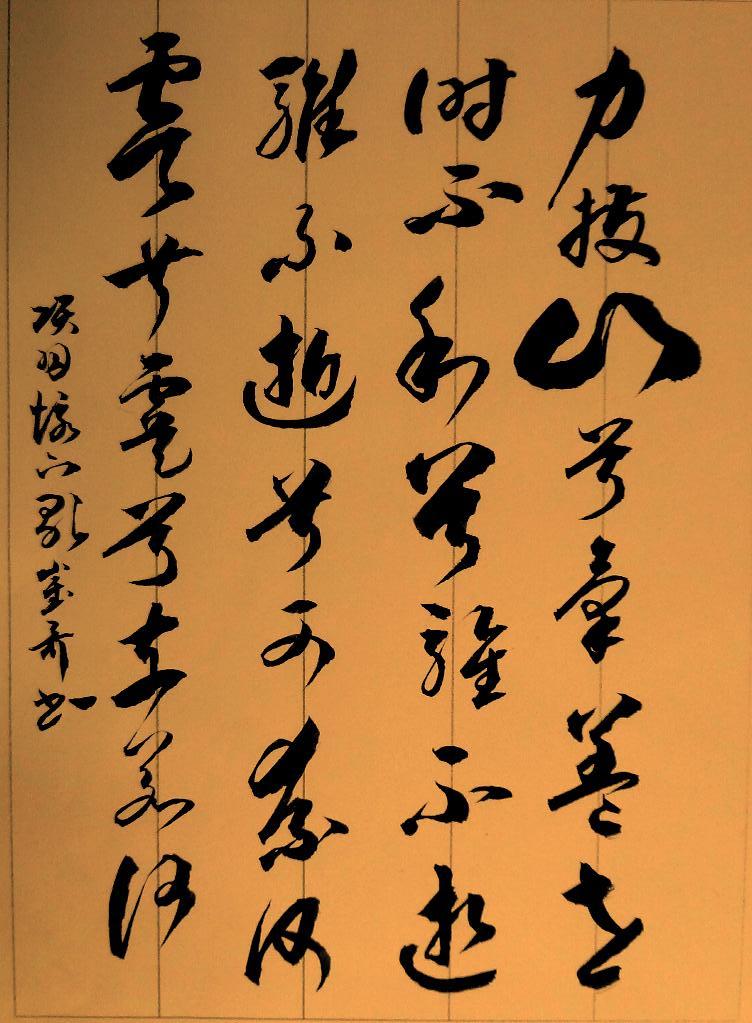 力拔山兮氣蓋世
时不利兮騅不逝
騅不逝兮可奈何
虞兮虞兮奈若何
项羽垓下歌 书